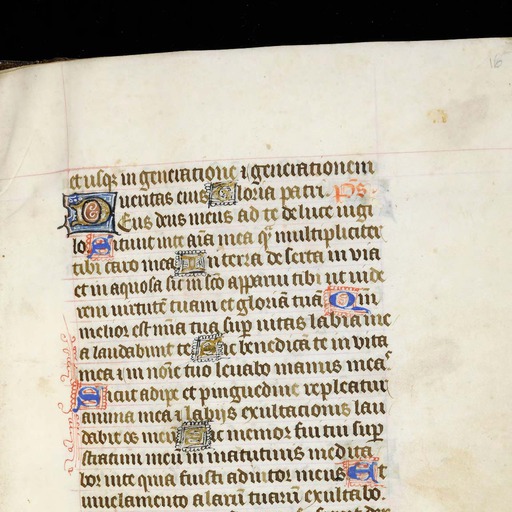 16
et usq; in generatione ⁊ generationem
ueritas eius Gloria patri. ps.
Deus deus meus ad te de luce uigi
lo Sitiuit in te aīa mea q̄ multipliciter
tibi caro mea In terra deserta in uia
et in aquosa sic in sc̄o apparui tibi ut uide
rem uirtutē tuam et gloriā tuā Qm̄
melior est mīa tua sup uitas labia me
a laudabunt te Sic benedicā te in vita
mea ⁊ in noīe tuo leuabo manus meas
Sicut adipe et pinguedine repleatur
anima mea ⁊ labijs exultationis lau
dabit os meū Sic memor fui tui sup
stratum meū in matutinis medita
bor in te quia fuisti adiutor meus Et
in uelamento alarū tuarū exultabo.